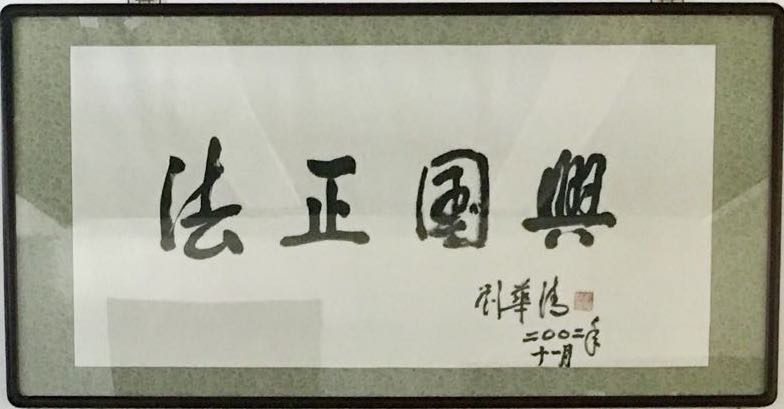 法正国興
刘華清
二〇〇二年
十一月